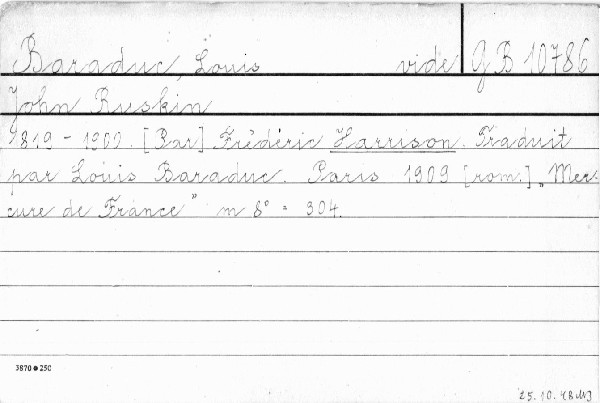 Baraduc, Louis vide GB 10786
John Ruskin
1819 - 1900. [Par] Frédéric Harrison. Traduit
par Louis Baraduc. Paris 1909 [rom.] „Mer-
cure de France" m 8° = 304.
3870 ● 250
25. 10. 48